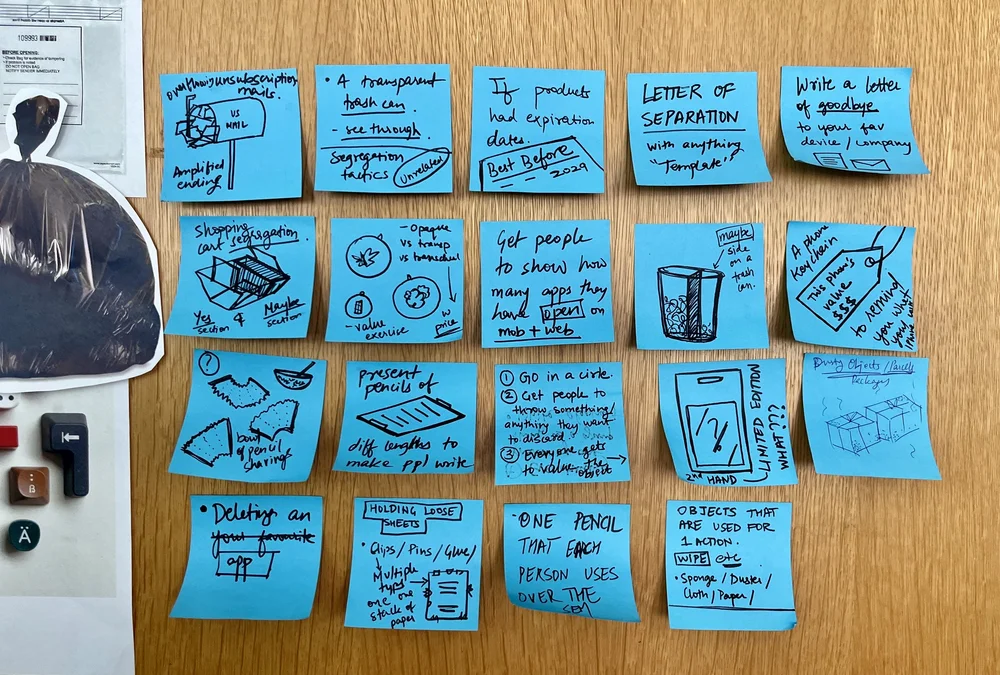 109993
BEFORE OPENING:
DO NOT OPEN BAG
NOTIFY SENDER IMMEDIATELY
B
Ä
overflowing unsubscription
mails.
US
MAIL
Amplified
ending
• A transparent
trash can.
- see through.
Segregation
tactics
Unrelated
If products
had expiration
dates.
Best Before
2029
LETTER OF
SEPARATION
with anything
"Template"?
Write a letter
of goodbye
to your fav
device/company
Shopping
cart segregation.
Yes
section
&
Maybe
section
- Opaque
vs transp
vs
- value
exercise
w
price
Get people
to show how
many apps they
have open on
mob + web
maybe
side
on a
trash
can.
A phone
keychain
This phone's
value
$$$
to remind
you what
your
?
bowl
of pencil
shavings
present
pencils of
diff lengths to
make ppl write
① Go in a circle.
② Get people to
throw something/
anything they want
to discard.
③ Everyone gets
to value the
object
?
LIMITED EDITION
WHAT???
2nd HAND
Dusty Objects/Parcels
Packages
• Deleting an
your favourite
app
HOLDING LOOSE
SHEETS
• Clips/Pins/Glue/
Multiple
types
one one
stack of
paper
ONE PENCIL
THAT EACH
PERSON USES
OVER THE
SEM
OBJECTS THAT
ARE USED FOR
1 ACTION.
WIPE etc
• Sponge/Duster/
Cloth/Paper/